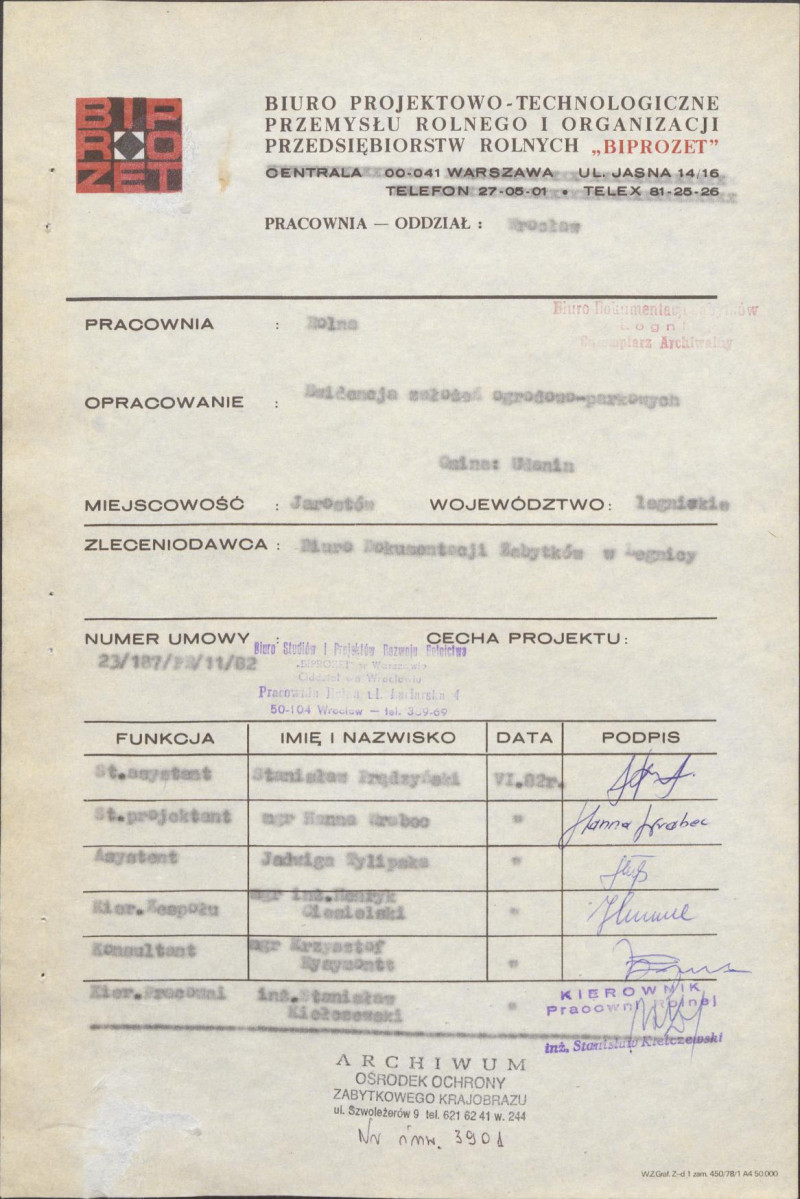 BIPROZET
BIURO PROJEKTOWO-TECHNOLOGICZNE
PRZEMYSŁU ROLNEGO I ORGANIZACJI
PRZEDSIĘBIORSTW ROLNYCH „BIPROZET"
CENTRALA 00-041 WARSZAWA UL. JASNA 14/16
TELEFON 27-05-01 • TELEX 81-25-26
PRACOWNIA — ODDZIAŁ : Wrocław
Biuro Dokumentacji Zabytków
PRACOWNIA : Rolna
Egzemplarz Archiwalny
OPRACOWANIE : Ewidencja założeń ogrodowo-parkowych
Gmina: Udanin
MIEJSCOWOŚĆ : Jarostów WOJEWÓDZTWO: legnickie
ZLECENIODAWCA : Biuro Dokumentacji Zabytków w Legnicy
NUMER UMOWY : CECHA PROJEKTU:
23/187/PR/11/82
Biuro Studiów i Projektów Rozwoju Rolnictwa
„BIPROZET" w Warszawie
Oddział we Wrocławiu
Pracownia Rolna ul.
50-104 Wrocław — tel. 339-69
FUNKCJA IMIĘ I NAZWISKO DATA PODPIS
St.asystent Stanisław Prądzyński VI.82r.
St.projektant mgr Hanna Grabec " Hanna Grabec
Asystent Jadwiga "
Kier.Zespołu mgr inż.Henryk
Ciesielski "
Konsultant mgr Krzysztof
"
Kier.Pracowni inż.Stanisław
Kiełczewski "
KIEROWNIK
Pracowni Rolnej
inż. Stanisław Kiełczewski
ARCHIWUM
OŚRODEK OCHRONY
ZABYTKOWEGO KRAJOBRAZU
ul. Szwoleżerów 9 tel. 621 62 41 w. 244
Nr inw. 3901
W.Z.Graf. Z-d 1 zam. 450/78/1 A4 50.000